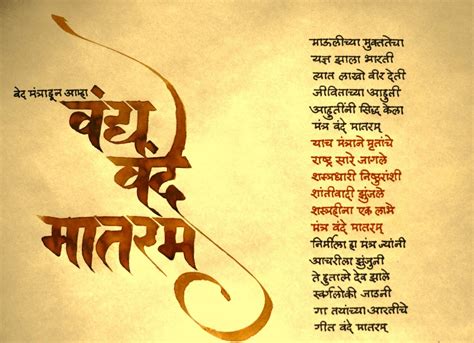 वेद मंत्राहून आम्हा
वंद्य
वंदे
मातरम
माऊलीच्या मुक्ततेचा
यज्ञ झाला भारती
त्यात लाखो वीर देती
जीविताच्या आहुती
आहुतींनी सिद्ध केला
मंत्र वंदे मातरम्
याच मंत्राने मृतांचे
राष्ट्र सारे जागले
शस्त्रधारी निष्ठुरांशी
शांतीवादी झुंजले
शस्त्रहीना एक लाभे
मंत्र वंदे मातरम्
निर्मीला हा मंत्र ज्यांनी
आचरीला झुंजुनी
ते हुतात्मे देव झाले
स्वर्गलोकी जाऊनी
गा तयांच्या आरतीचे
गीत वंदे मातरम्